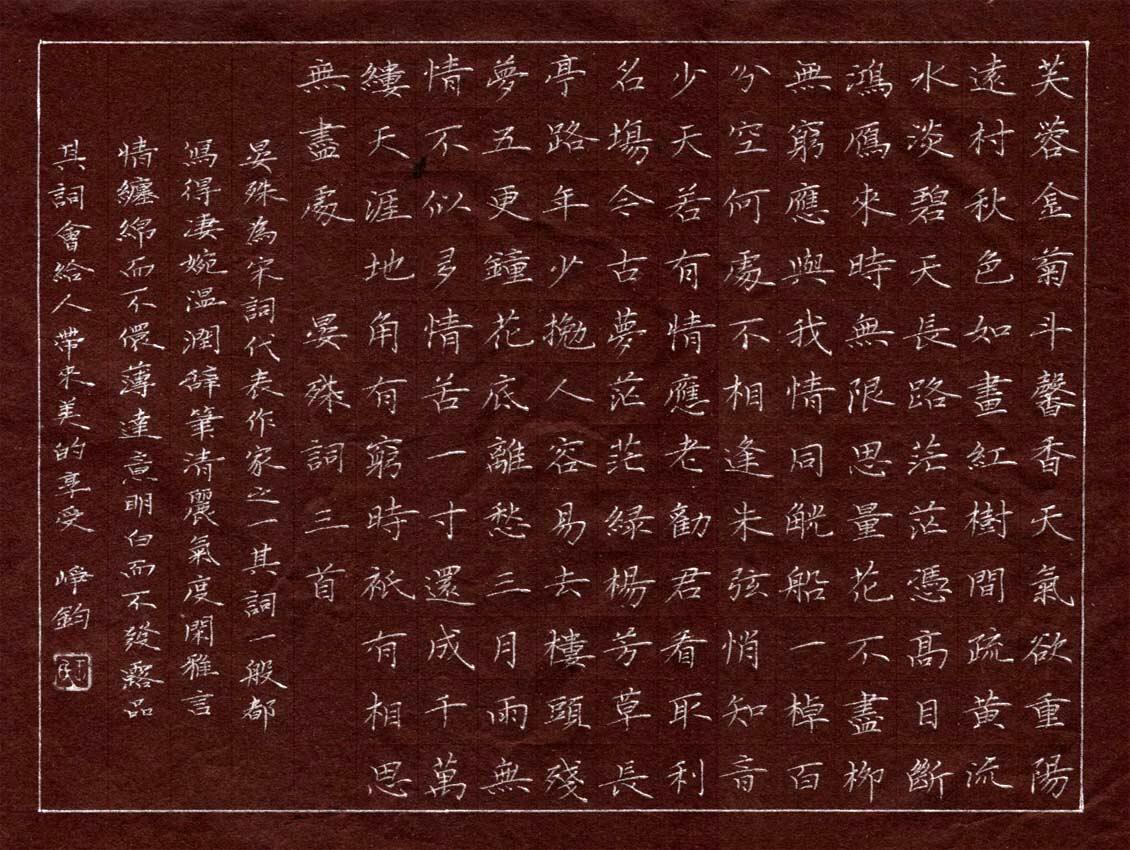 芙蓉金菊斗馨香天氣欲重陽
遠村秋色如畫紅樹間疏黃流
水淡碧天長路茫茫憑高目斷
鴻鴈來時無限思量花不盡柳
無窮應與我情同觥船一棹百
分空何處不相逢朱弦悄知音
少天若有情應老勸君看取利
名場今古夢茫茫綠楊芳草長
亭路年少拋人容易去樓頭殘
夢五更鐘花底離愁三月雨無
情不似多情苦一寸還成千萬
縷天涯地角有窮時祇有相思
無盡處 晏殊詞三首
晏殊為宋詞代表作家之一其詞一般都
寫得淒婉溫潤辭筆清麗氣度閑雅言
情纏綿而不儇薄達意明白而不發露品
其詞會給人帶來美的享受 崢鈞